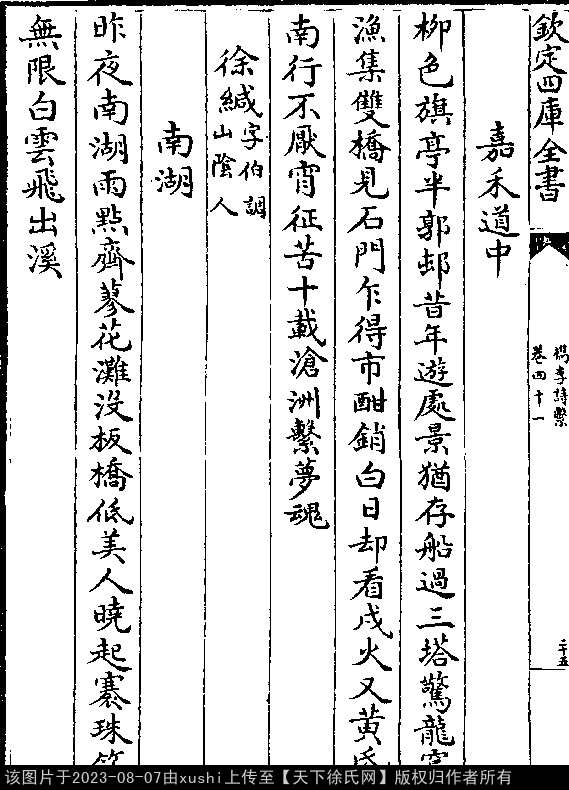 欽定四庫全書
檇李詩繫
卷四十一
二十五
嘉禾道中
柳色旗亭半郭邨昔年遊處景猶存船過三塔驚龍
漁集雙橋見石門乍得市酣銷白日却看戍火又黄
南行不厭宵征苦十載滄洲繫夢魂
徐緘字伯調
山陰人
南湖
昨夜南湖雨點齊蓼花灘没板橋低美人曉起褰珠
無限白雲飛出溪
该图片于2023-08-07由xushi上传至【天下徐氏网】版权归作者所有